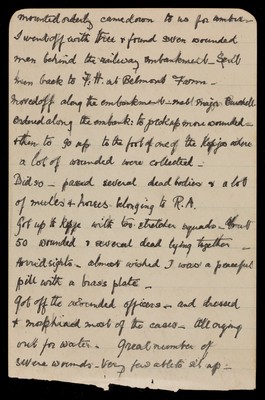 mounted orderly came down to us for ambce.
I went off with three & found seven wounded
men behind the railway embankment - sent
them back to F.H. at Belmont Farm -
Moved off along the embankment - met Major
ordered along the embankt: to pick up more wounded -
& then to go up to the foot of one of the Kopjes where
a lot of wounded were collected -
Did so - passed several dead bodies & a lot
of mules & horses belonging to R.A.
Got up to Kopje with two stretcher squads - About
50 wounded & several dead lying together -
Horrid sights - almost wished I were a peaceful
pill with a brass plate -
Got off the wounded officers - and dressed
& morphiaed most of the cases - All crying
out for water - Great number of
severe wounds - Very few able to sit up -